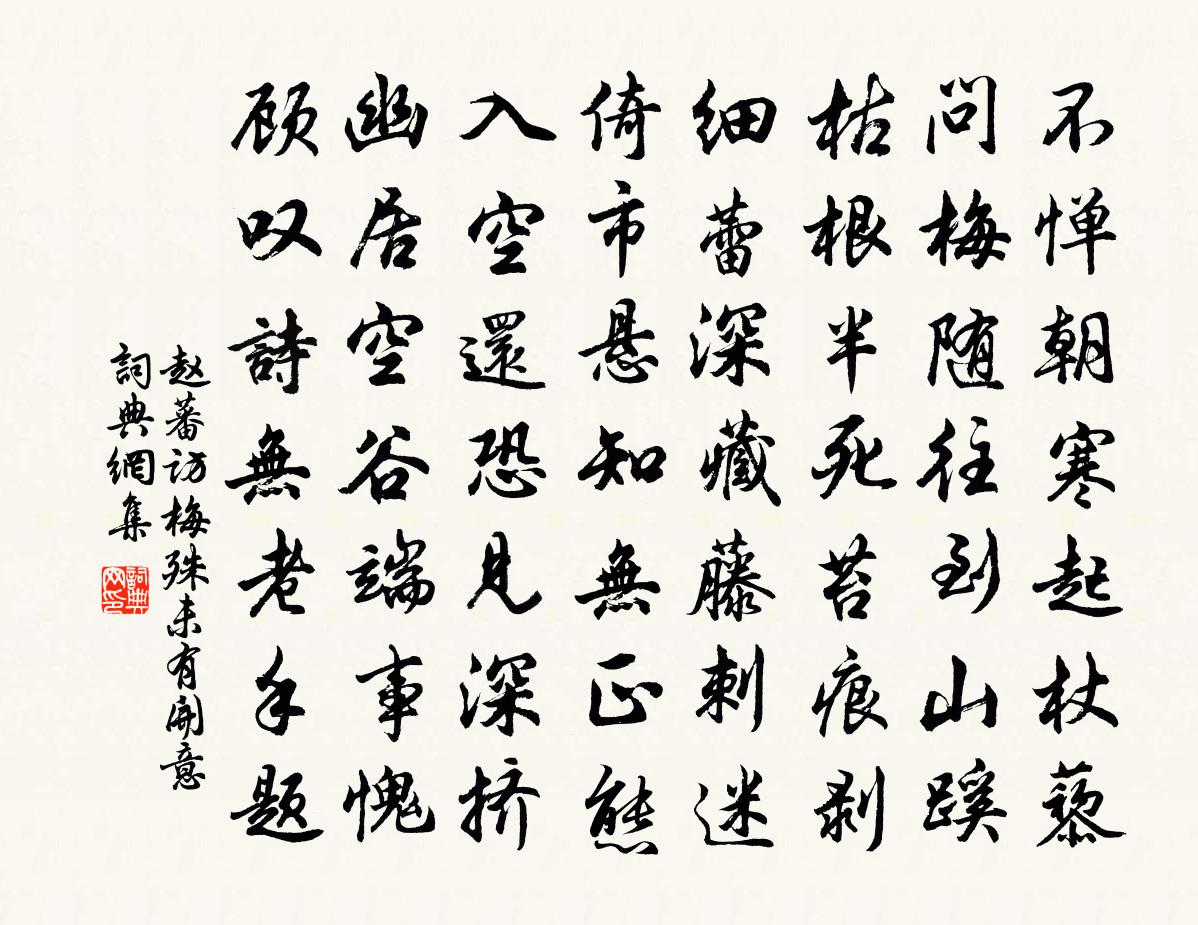 不惮朝寒起杖藜
问梅随往到山蹊
枯根半死苔痕剥
细蕾深藏藤刺迷
倚市悬知無正態
入空還恐見深挤
幽居空谷端事愧
顾叹詩無老手题
赵蕃访梅殊未有開意
詞典網集
詞典网印